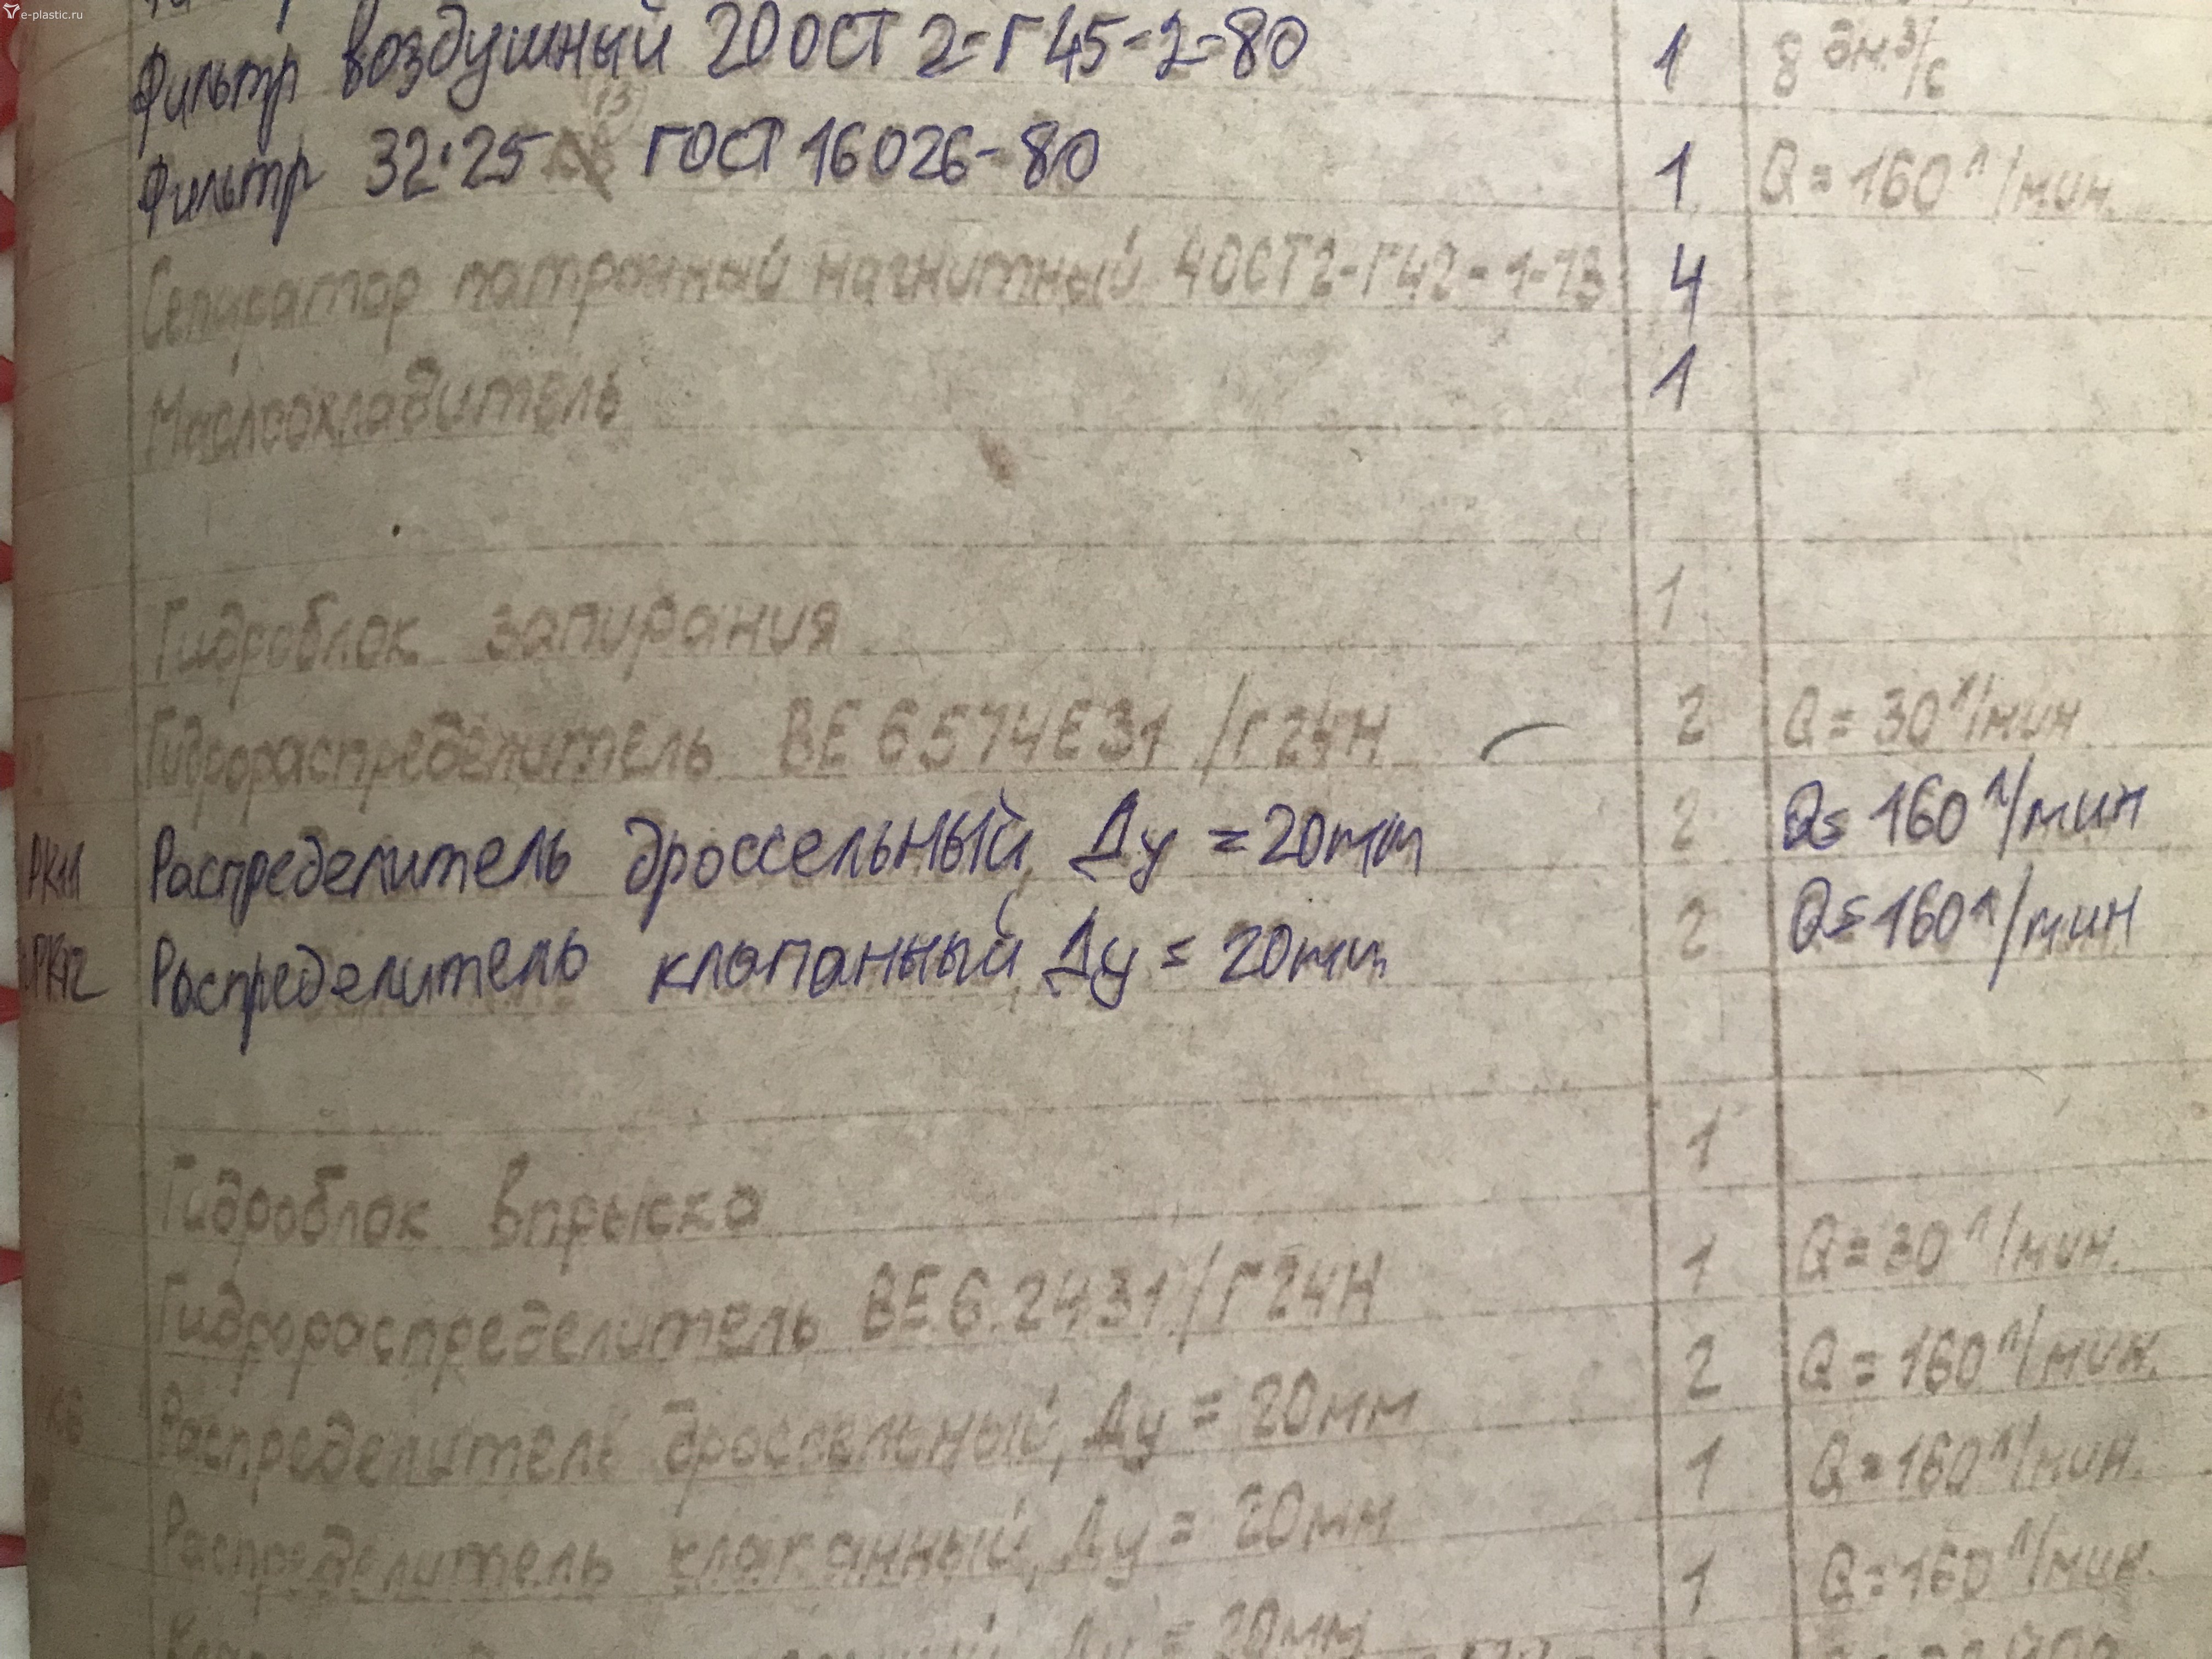 e-plastic.ru
Фильтр воздушный 20 ОСТ 2-Г45-2-80 1 8 дм³/с
Фильтр 32·25 ГОСТ 16026-80 1 Q = 160 л/мин.
Сепаратор патронный магнитный 4 ОСТ2-Г42-1-73 4
Маслоохладитель 1
Гидроблок запирания 1
Гидрораспределитель ВЕ 6 574Е31 /Г24Н 2 Q = 30 л/мин
РК11 Распределитель дроссельный, Ду = 20mm 2 Q = 160 л/мин
РК12 Распределитель клапанный, Ду = 20mm 2 Q = 160 л/мин
Гидроблок впрыска 1
Гидрораспределитель ВЕ6.2431/Г24Н 1 Q = 30 л/мин.
Распределитель дроссельный, Ду = 20мм 2 Q = 160 л/мин.
Распределитель клапанный, Ду = 20мм 1 Q = 160 л/мин.
Ду = 20мм 1 Q = 160 л/мин.